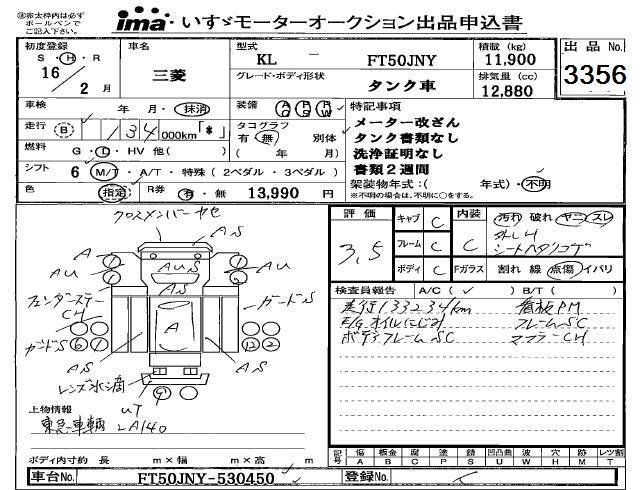 ㊟赤太枠内は必ず
ボールペンで
ご記入下さい。
ima・いすゞモーターオークション出品申込書
初度登録 S・H・R 16 / 2 月
車名 三菱
型式 KL － FT50JNY
積載(kg) 11,900
出品No. 3356
グレード・ボディ形状 タンク車
排気量(cc) 12,880
車検 年 月・抹消
装備 AC PS PW
特記事項
メーター改ざん
タンク書類なし
洗浄証明なし
書類2週間
架装物年式:( 年式)・不明
※不明の場合は、不明に○をする。
走行 B 134 000km「*」
タコグラフ 有・無 別体 ( 年 月)
燃料 G・L・HV 他( )
シフト 6 M/T・A/T・特殊(2ペダル・3ペダル)
色 指定 R券 有・無 13,990 円
クロスメンバーヤセ
A S
A A
AU AUS AU
AS
フェンダーステー CH
ガードS
A
ガードS
AS AS
レンズ水滴
UT
上物情報
東急車輌 LA140
ボディ内寸約 長 m×幅 m×高 m
評価 3.5
キャブ C 内装 C
フレーム C
ボディ C Fガラス S
汚れ 破れ ヤニ スレ
シートヘタリコゲ
割れ 線 点傷 イバリ
検査員報告 A/C( ✓ ) B/T( )
走行133234km 看板PM
E/Gオイルにじみ フレームSC
ボディフレームSC マフラーCH
記号 傷A 板金B 腐C 塗P 錆S 凹凸曲U 波W 穴H 跡M レツ割T
車台No. FT50JNY-530450 登録No.